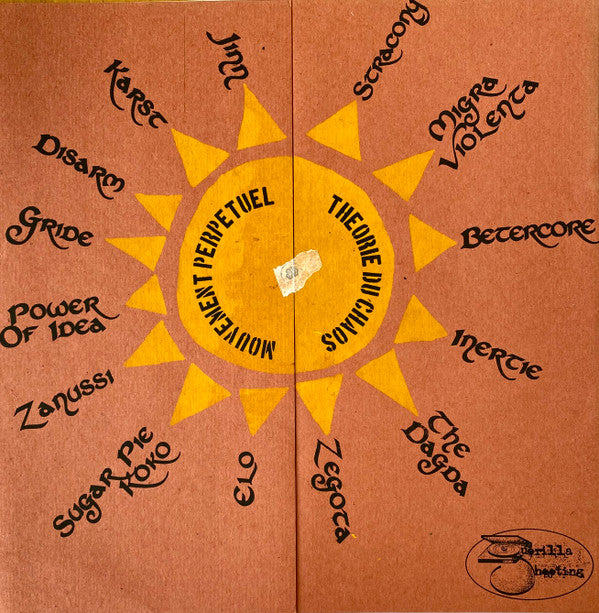 Jinn
Stracony
Karst
Migra
Violenta
Disarm
Gride
Betercore
MOUVEMENT PERPETUEL
THEORIE DU CHAOS
Power
Of Idea
Inertie
Zanussi
The
Dagda
Sugar Pie
Koko
Elo
Zegota
Guerilla
Shooting